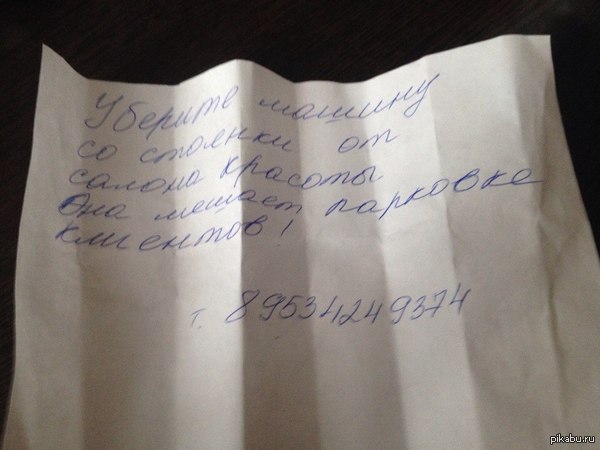 Уберите машину
со стоянки от
салона красоты
Она мешает парковке
клиентов!
т. 89534249374
pikabu.ru